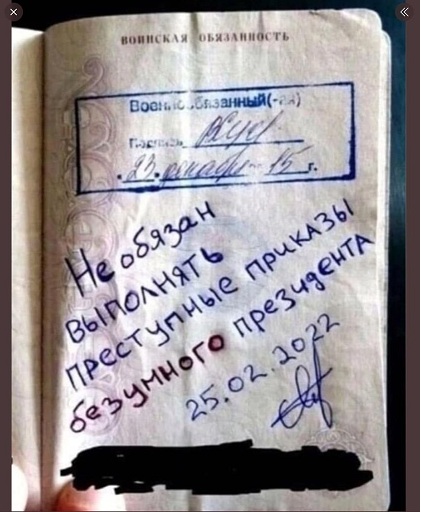 ВОИНСКАЯ ОБЯЗАННОСТЬ
Военнообязанный(-ая)
Подпись
23. декабря 15 г.
Не обязан
выполнять
преступные приказы
безумного президента
25.02.2022